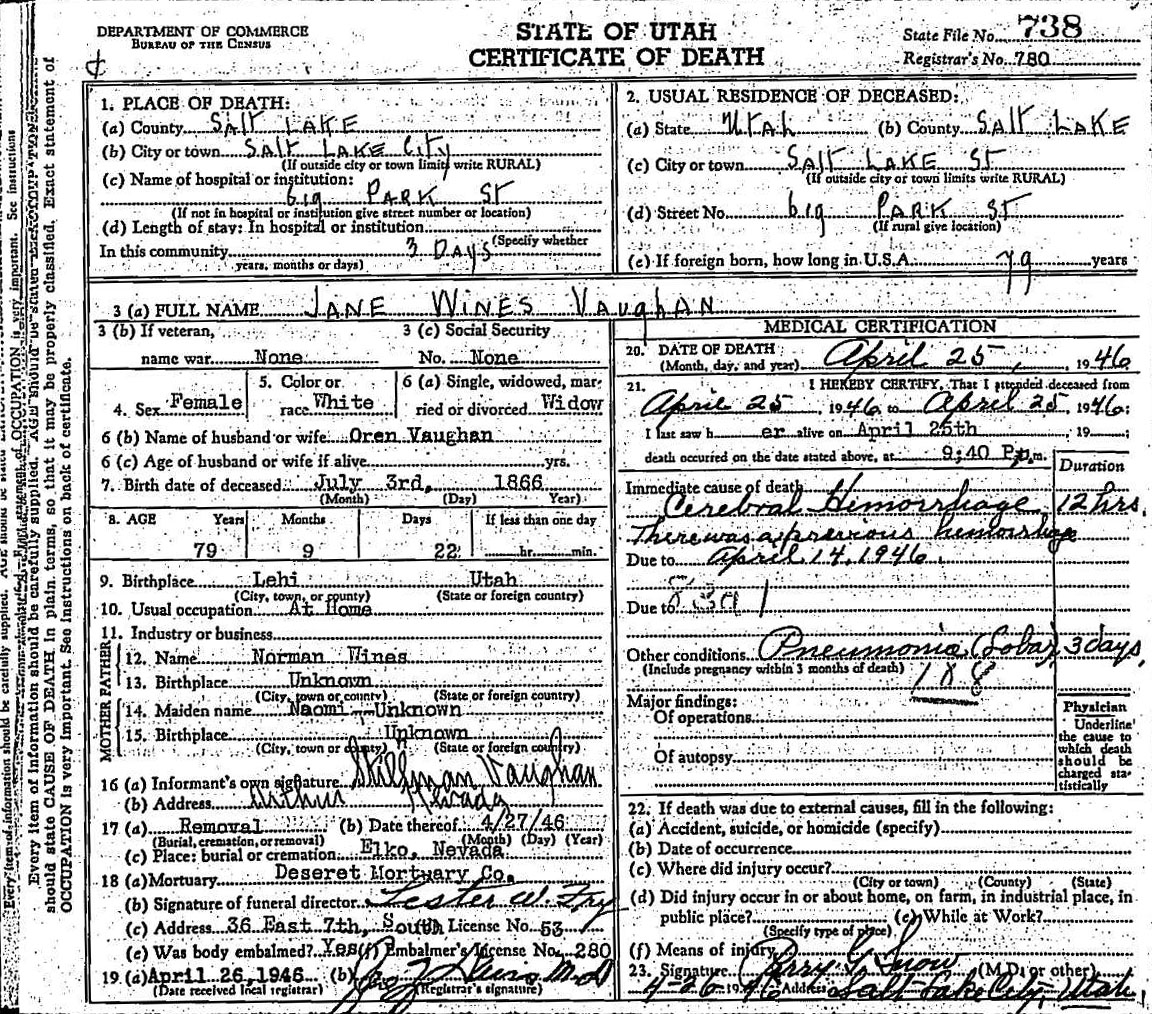 DEPARTMENT OF COMMERCE
BUREAU OF THE CENSUS
STATE OF UTAH
CERTIFICATE OF DEATH
State File No. 738
Registrar's No. 780
1. PLACE OF DEATH:
(a) County SALT LAKE
(b) City or town SALT LAKE City
(If outside city or town limits write RURAL)
(c) Name of hospital or institution:
619 PARK ST
(If not in hospital or institution give street number or location)
(d) Length of stay: In hospital or institution
(Specify whether
In this community 3 DAYS
years, months or days)
2. USUAL RESIDENCE OF DECEASED:
(a) State Utah (b) County SALT LAKE
(c) City or town SALT LAKE ST
(If outside city or town limits write RURAL)
(d) Street No. 619 PARK ST
(If rural give location)
(e) If foreign born, how long in U.S.A. 79 years
3 (a) FULL NAME JANE WINES VAUGHAN
3 (b) If veteran, name war None
3 (c) Social Security No. None
4. Sex Female
5. Color or race White
6 (a) Single, widowed, married or divorced Widow
6 (b) Name of husband or wife Oren Vaughan
6 (c) Age of husband or wife if alive yrs.
7. Birth date of deceased July 3rd, 1866
(Month) (Day) Year)
8. AGE Years Months Days If less than one day
79 9 22 hr. min.
9. Birthplace Lehi Utah
(City, town, or county) (State or foreign country)
10. Usual occupation At Home
11. Industry or business
FATHER
12. Name Norman Wines
13. Birthplace Unknown
(City, town or county) (State or foreign country)
MOTHER
14. Maiden name Naomi--Unknown
15. Birthplace Unknown
(City, town or county) (State or foreign country)
16 (a) Informant's own signature Stillman Vaughan
(b) Address Arthur Nevada
17 (a) Removal (b) Date thereof 4/27/46
(Burial, cremation, or removal) (Month) (Day) (Year)
(c) Place: burial or cremation Elko, Nevada
18 (a) Mortuary Deseret Mortuary Co.
(b) Signature of funeral director Lester W. Fry
(c) Address 36 East 7th, South License No. 53
(e) Was body embalmed? Yes (f) Embalmer's License No. 280
19 (a) April 26, 1946 (b) M.D
(Date received local registrar) (Registrar's signature)
MEDICAL CERTIFICATION
20. DATE OF DEATH
(Month, day, and year) April 25, 1946
21. I HEREBY CERTIFY, That I attended deceased from
April 25, 1946 to April 25, 1946;
I last saw her alive on April 25th, 19
death occurred on the date stated above, at 9:40 P.m.
Duration
Immediate cause of death
Cerebral Hemorrhage 12 hrs.
There was a previous hemorrhage
Due to April 14, 1946
Due to
Other conditions Pneumonia (Lobar) 3 days
(Include pregnancy within 3 months of death)
108
Major findings:
Of operations
Of autopsy
Physician
Underline the cause to which death should be charged statistically
22. If death was due to external causes, fill in the following:
(a) Accident, suicide, or homicide (specify)
(b) Date of occurrence
(c) Where did injury occur?
(City or town) (County) (State)
(d) Did injury occur in or about home, on farm, in industrial place, in
public place? (e) While at Work?
(Specify type of place)
(f) Means of injury
23. Signature Perry G. Snow (M.D. or other)
4-26 1946 Address Salt Lake City, Utah
Every item of information should be carefully supplied. AGE should be stated EXACTLY. Exact statement of
should state CAUSE OF DEATH in plain terms, so that it may be properly classified.
OCCUPATION is very important. See instructions on back of certificate.